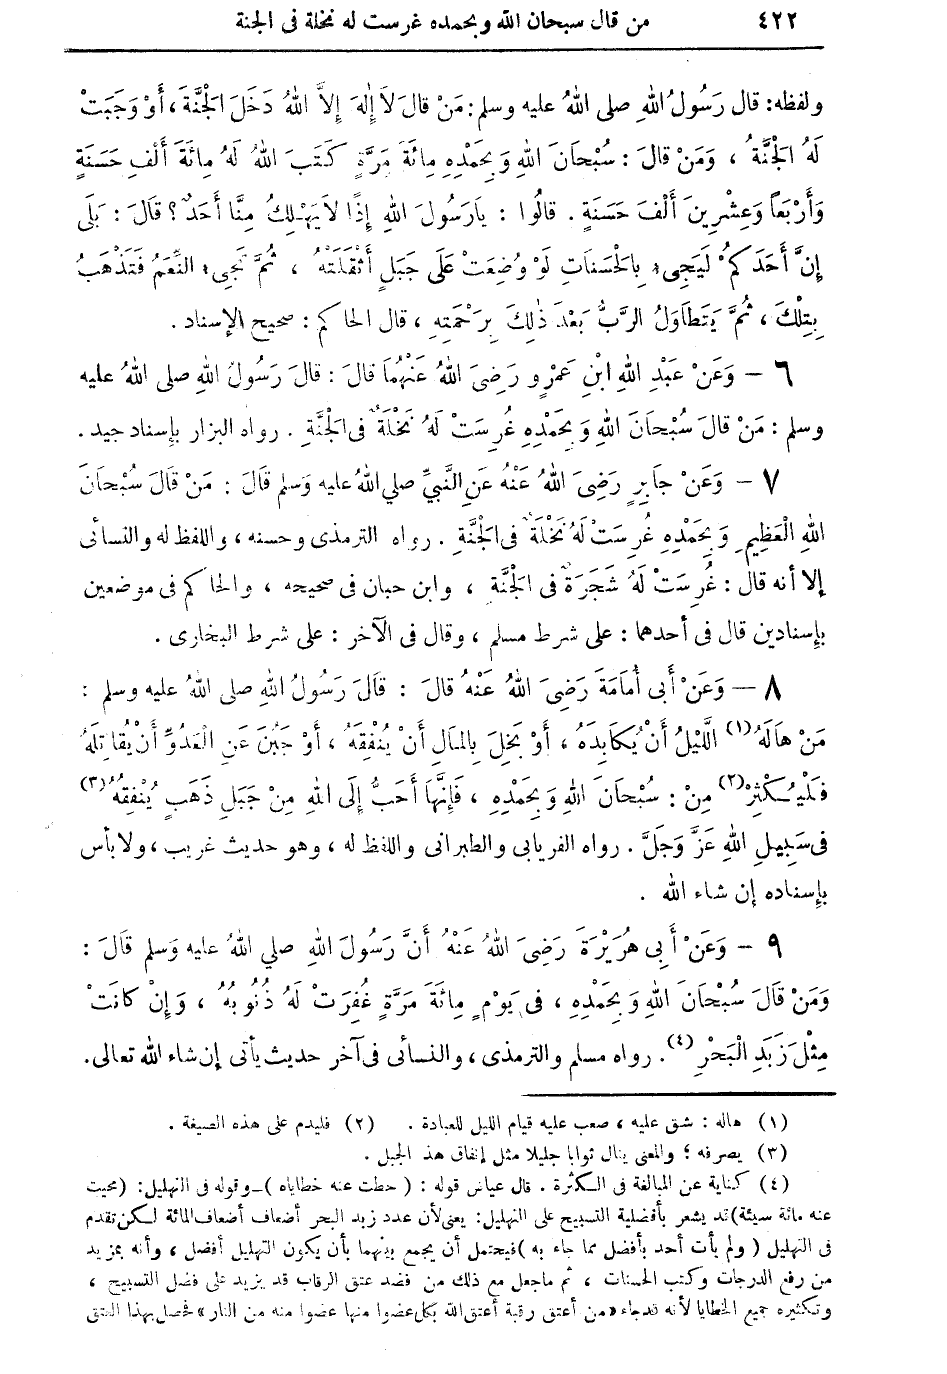 ٤٢٢ من قال سبحان الله وبحمده غرست له نخلة فى الجنة
ولفظه: قال رَسُولُ اللهِ صلى اللهُ عليه وسلم: مَنْ قالَ لاَ إِلٰهَ إِلاَّ اللهُ دَخَلَ الْجَنَّةَ، أَوْ وَجَبَتْ
لَهُ الْجَنَّةُ، وَمَنْ قالَ: سُبْحَانَ اللهِ وَبِحَمْدِهِ مِائَةَ مَرَّةٍ كَتَبَ اللهُ لَهُ مِائَةَ أَلْفِ حَسَنَةٍ
وَأَرْبَعاً وَعِشْرِينَ أَلْفَ حَسَنَةٍ. قالُوا: يارَسُولَ اللهِ إِذًا لاَيَهْلِكُ مِنَّا أَحَدٌ؟ قالَ: بَلَى
إِنَّ أَحَدَكُمْ لَيَجِىءُ بِالْحَسَنَاتِ لَوْ وُضِعَتْ عَلَى جَبَلٍ أَثْقَلَتْهُ، ثُمَّ تَجِىءُ النِّعَمُ فَتَذْهَبُ
بِتِلْكَ، ثُمَّ يَتَطَاوَلُ الرَّبُّ بَعْدَ ذٰلِكَ بِرَحْمَتِهِ، قال الحاكم: صحيح الإسناد.
٦ – وَعَنْ عَبْدِ اللهِ ابْنِ عَمْرٍو رَضِىَ اللهُ عَنْهُمَا قالَ: قالَ رَسُولُ اللهِ صلى اللهُ عليه
وسلم: مَنْ قالَ سُبْحَانَ اللهِ وَبِحَمْدِهِ غُرِسَتْ لَهُ نَخْلَةٌ فى الْجَنَّةِ. رواه البزار بإسناد جيد.
٧ – وَعَنْ جابِرٍ رَضِىَ اللهُ عَنْهُ عَنِ النَّبِيِّ صلى اللهُ عليه وَسلم قَالَ: مَنْ قَالَ سُبْحَانَ
اللهِ الْعَظِيمِ وَبِحَمْدِهِ غُرِسَتْ لَهُ نَخْلَةٌ فى الْجَنَّةِ. رواه الترمذى وحسنه، واللفظ له والنسائى
إلا أنه قال: غُرِسَتْ لَهُ شَجَرَةٌ فى الْجَنَّةِ، وابن حبان فى صحيحه، والحاكم فى موضعين
بإسنادين قال فى أحدهما: على شرط مسلم، وقال فى الآخر: على شرط البخارى.
٨ – وَعَنْ أَبى أُمَامَةَ رَضِىَ اللهُ عَنْهُ قالَ: قَالَ رَسُولُ اللهِ صلى اللهُ عليه وسلم:
مَنْ هَالَهُ (١) اللَّيْلُ أَنْ يُكابِدَهُ، أَوْ بَخِلَ بِالمَالِ أَنْ يُنْفِقَهُ، أَوْ جَبُنَ عَنِ الْعَدُوِّ أَنْ يُقاتِلَهُ
فَلْيُكْثِرْ (٢) مِنْ: سُبْحَانَ اللهِ وَبِحَمْدِهِ، فَإِنَّهَا أَحَبُّ إِلَى اللهِ مِنْ جَبَلِ ذَهَبٍ يُنْفِقُهُ (٣)
فى سَبِيلِ اللهِ عَزَّ وَجَلَّ. رواه الفريابى والطبرانى واللفظ له، وهو حديث غريب، ولا بأس
بإسناده إن شاء الله.
٩ – وَعَنْ أَبِى هُرَيْرَةَ رَضِىَ اللهُ عَنْهُ أَنَّ رَسُولَ اللهِ صلى اللهُ عليه وَسلم قَالَ:
وَمَنْ قَالَ سُبْحَانَ اللهِ وَبِحَمْدِهِ، فى يَوْمٍ مِائَةَ مَرَّةٍ غُفِرَتْ لَهُ ذُنُوبُهُ، وَإِنْ كانَتْ
مِثْلَ زَبَدِ الْبَحْرِ (٤). رواه مسلم والترمذى، والنسائى فى آخر حديث يأتى إن شاء الله تعالى.
(١) هاله: شق عليه، صعب عليه قيام الليل للعبادة. (٢) فليدم على هذه الصيغة.
(٣) يصرفه؛ والمعنى ينال ثوابا جليلا مثل إنفاق هذ الجبل.
(٤) كناية عن المبالغة فى الكثرة. قال عياض قوله: (حطت عنه خطاياه) – وقوله فى التهليل: (محيت
عنه مائة سيئة) قد يشعر بأفضلية التسبيح على التهليل: يعنى لأن عدد زبد البحر أضعاف أضعاف المائة لكن تقدم
فى التهليل (ولم يأت أحد بأفضل مما جاء به) فيحتمل أن يجمع بينهما بأن يكون التهليل أفضل، وأنه بمزيد
من رفع الدرجات وكتب الحسنات، ثم ماجعل مع ذلك من فضد عتق الرقاب قد يزيد على فضل التسبيح،
وتكثيره جميع الخطايا لأنه قدجاء «من أعتق رقبة أعتق الله بكل عضوا منها عضوا منه من النار» فحصل بهذا العتق